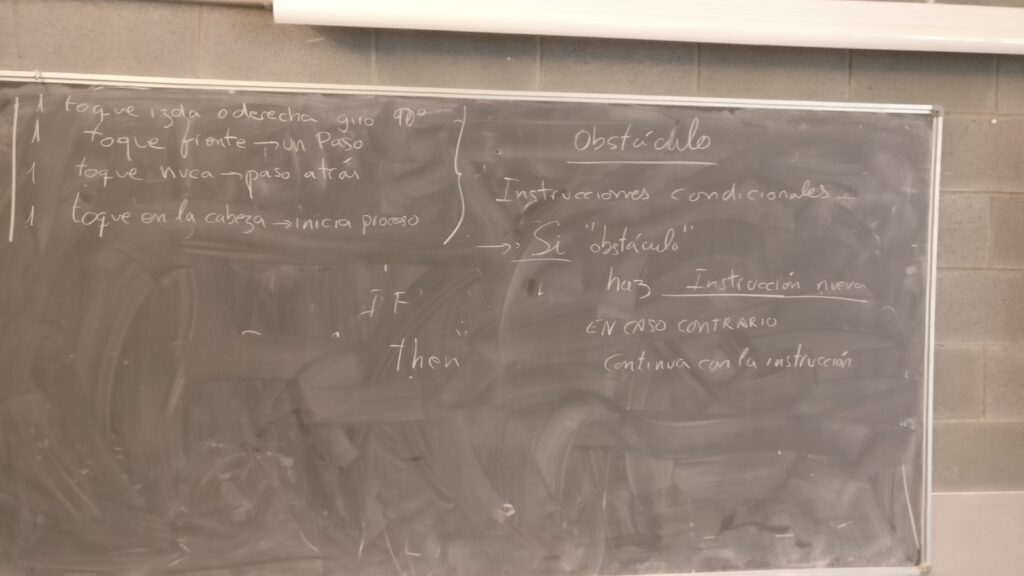 1 toque izqda o derecha giro 90º
1 toque frente → un Paso
1 toque nuca → paso atrás
1 toque en la cabeza → inicia proceso
Obstáculo
Instrucciones condicionales
→ Si "obstáculo"
haz Instrucción nueva
EN CASO CONTRARIO
continua con la instrucción
IF
Then